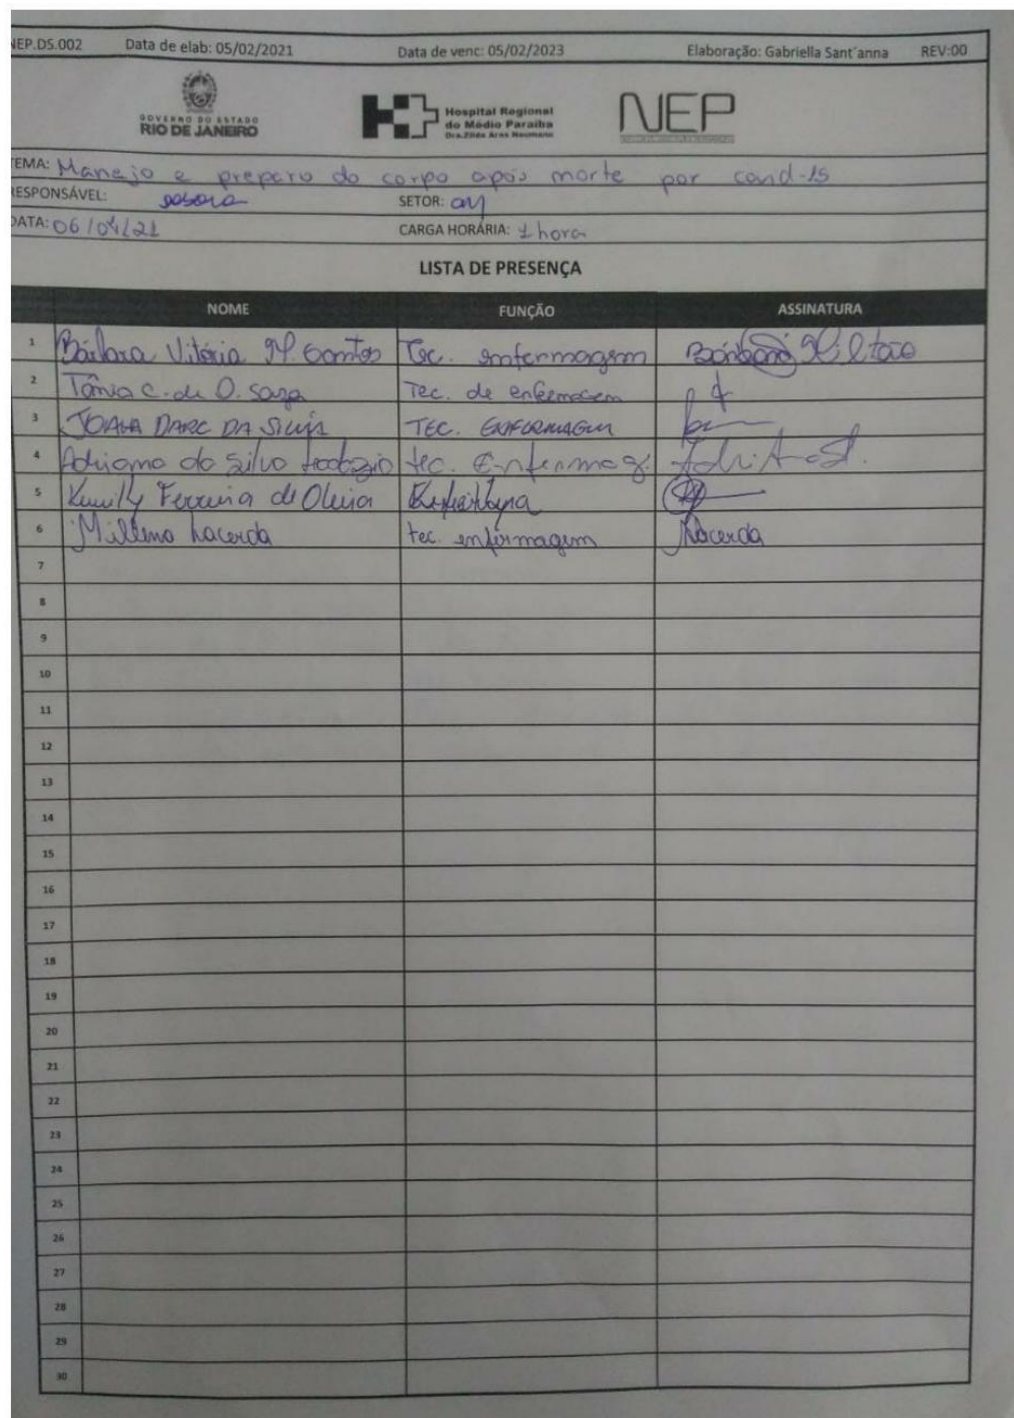 NEP.DS.002 Data de elab: 05/02/2021 Data de venc: 05/02/2023 Elaboração: Gabriella Sant´anna REV:00
GOVERNO DO ESTADO
RIO DE JANEIRO
Hospital Regional
do Médio Paraíba
Dra. Zilda Arns Neumann
NEP
TEMA: Manejo e preparo do corpo após morte por covid-19
RESPONSÁVEL: SETOR:
DATA: 06/04/21 CARGA HORÁRIA: 1 hora
LISTA DE PRESENÇA
NOME FUNÇÃO ASSINATURA
1 Bárbara Vitória M. Santos Tec. enfermagem
2 Tânia C. de O. Tec. de enfermagem
3 JOANA DARC DA SILVA TEC. ENFERMAGEM
4 Adriano da Silva tec. Enfermag.
5 Ferreira de
6 Lacerda tec. enfermagem Lacerda
7
8
9
10
11
12
13
14
15
16
17
18
19
20
21
22
23
24
25
26
27
28
29
30